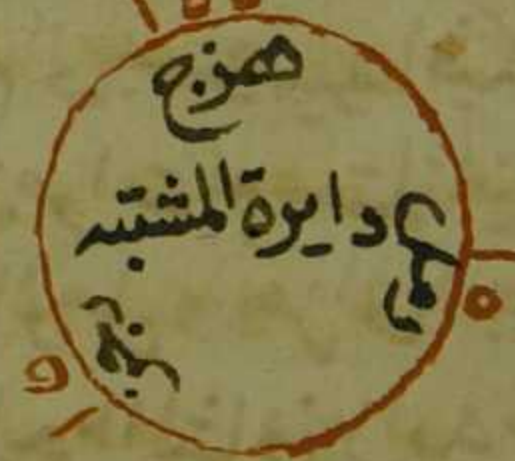 هزج
دايرة المشتبه
رمل
رجز